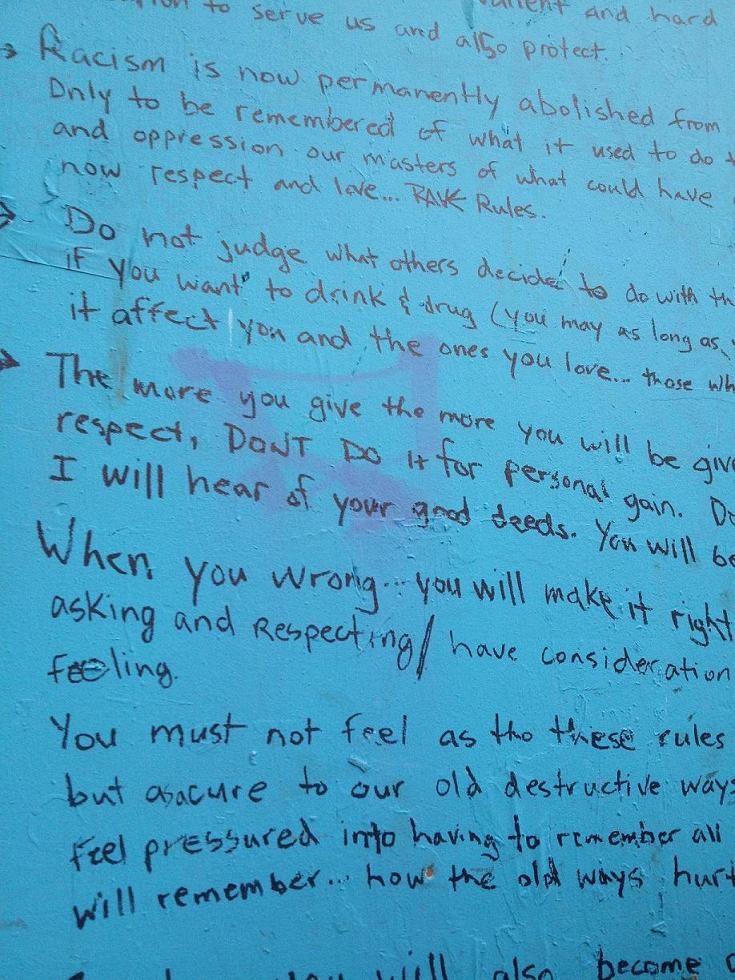 to serve us and also protect. and hard
Racism is now permanently abolished from
Only to be remembered of what it used to do
and oppression our masters of what could have
now respect and love... RAVE Rules.
Do not judge what others decide to do with
if you want to drink & drug (you may as long as
it affect you and the ones you love... those
The more you give the more you will be give
respect, DON'T DO it for personal gain. Do
I will hear of your good deeds. You will be
When you wrong... you will make it right
asking and Respecting/ have consideration
feeling.
You must not feel as tho these rules
but asacure to our old destructive ways
Feel pressured into having to remember all
will remember... how the old ways hurt
will also become